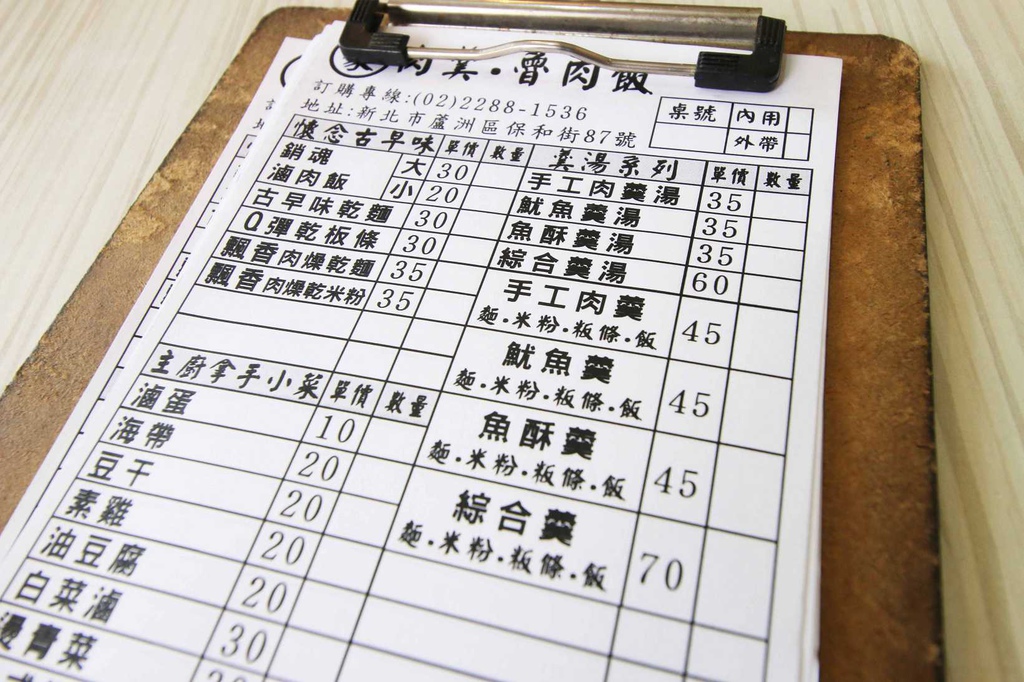 肉羹·魯肉飯
訂購專線:(02)2288-1536
地址:新北市蘆洲區保和街87號
桌號 內用
外帶
懷念古早味 單價 數量
銷魂滷肉飯 大 30
小 20
古早味乾麵 30
Q彈乾板條 30
飄香肉燥乾麵 35
飄香肉燥乾米粉 35
主廚拿手小菜 單價 數量
滷蛋 10
海帶 20
豆干 20
素雞 20
油豆腐 20
白菜滷 30
燙青菜
羹湯系列 單價 數量
手工肉羹湯 35
魷魚羹湯 35
魚酥羹湯 35
綜合羹湯 60
手工肉羹
麵.米粉.粄條.飯 45
魷魚羹
麵.米粉.粄條.飯 45
魚酥羹
麵.米粉.粄條.飯 45
綜合羹
麵.米粉.粄條.飯 70